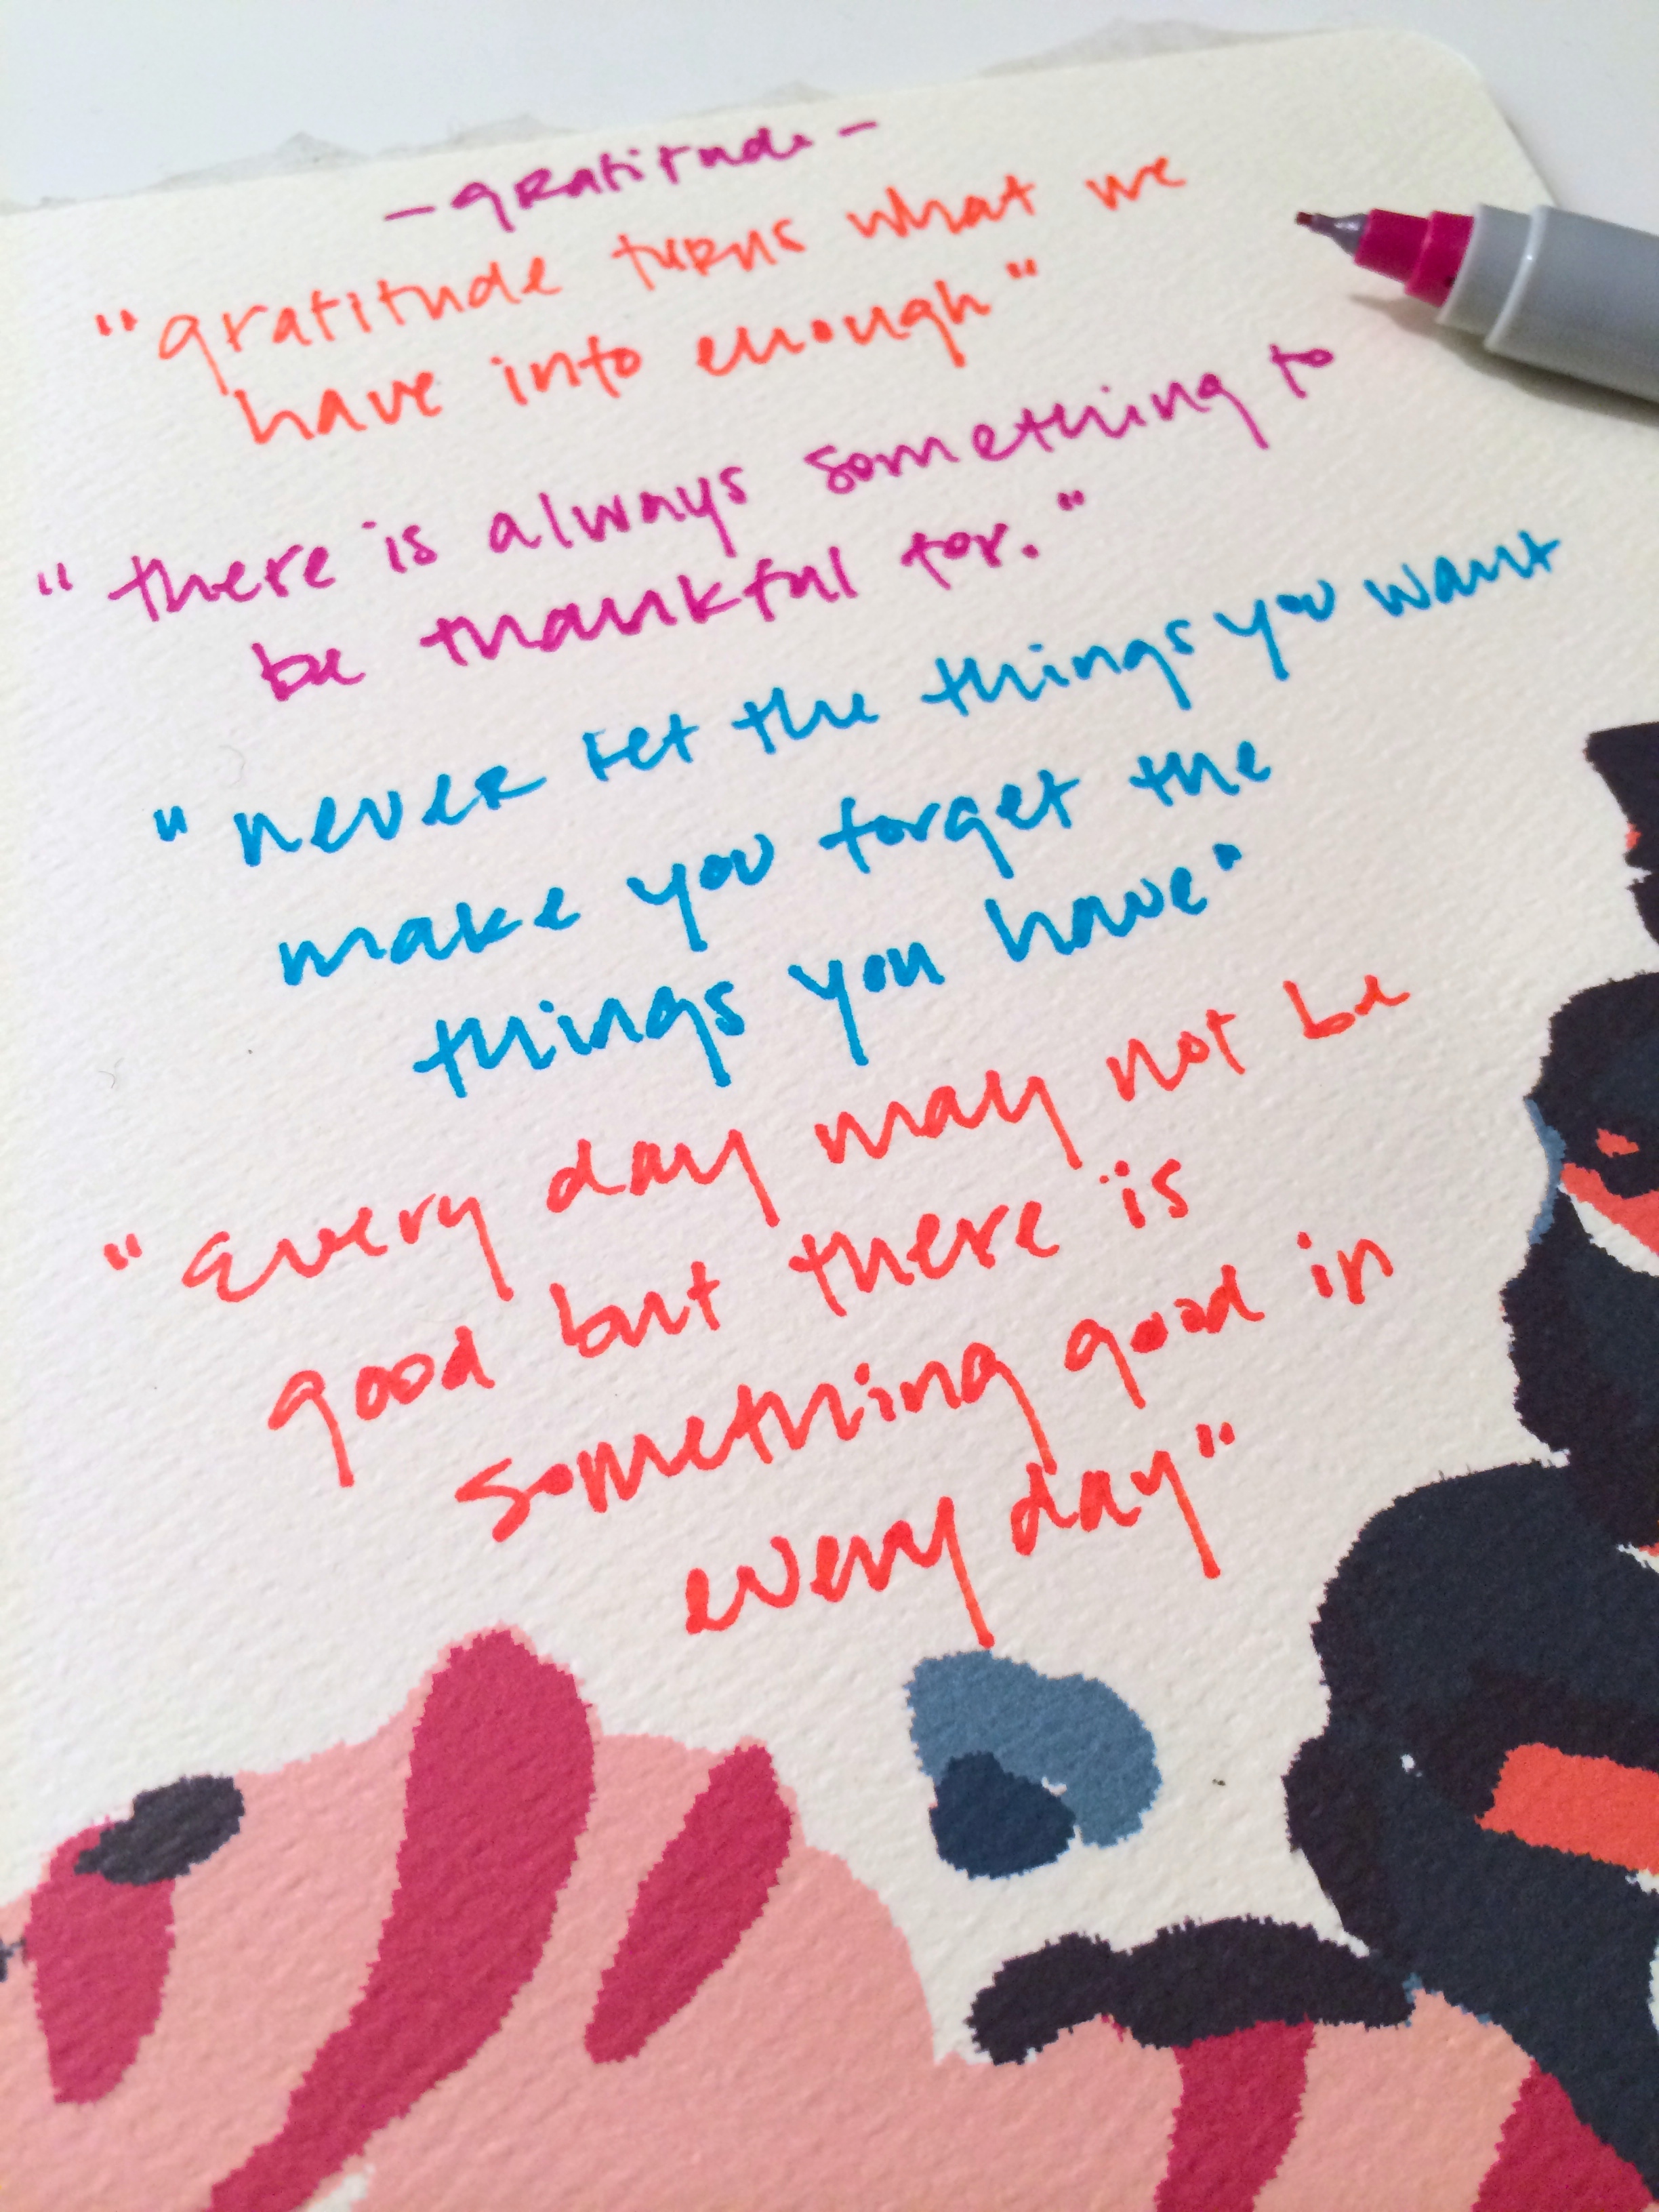 - gratitude -
"gratitude turns what we
have into enough"
"there is always something to
be thankful for."
"never let the things you want
make you forget the
things you have"
"Every day may not be
good but there is
something good in
every day"